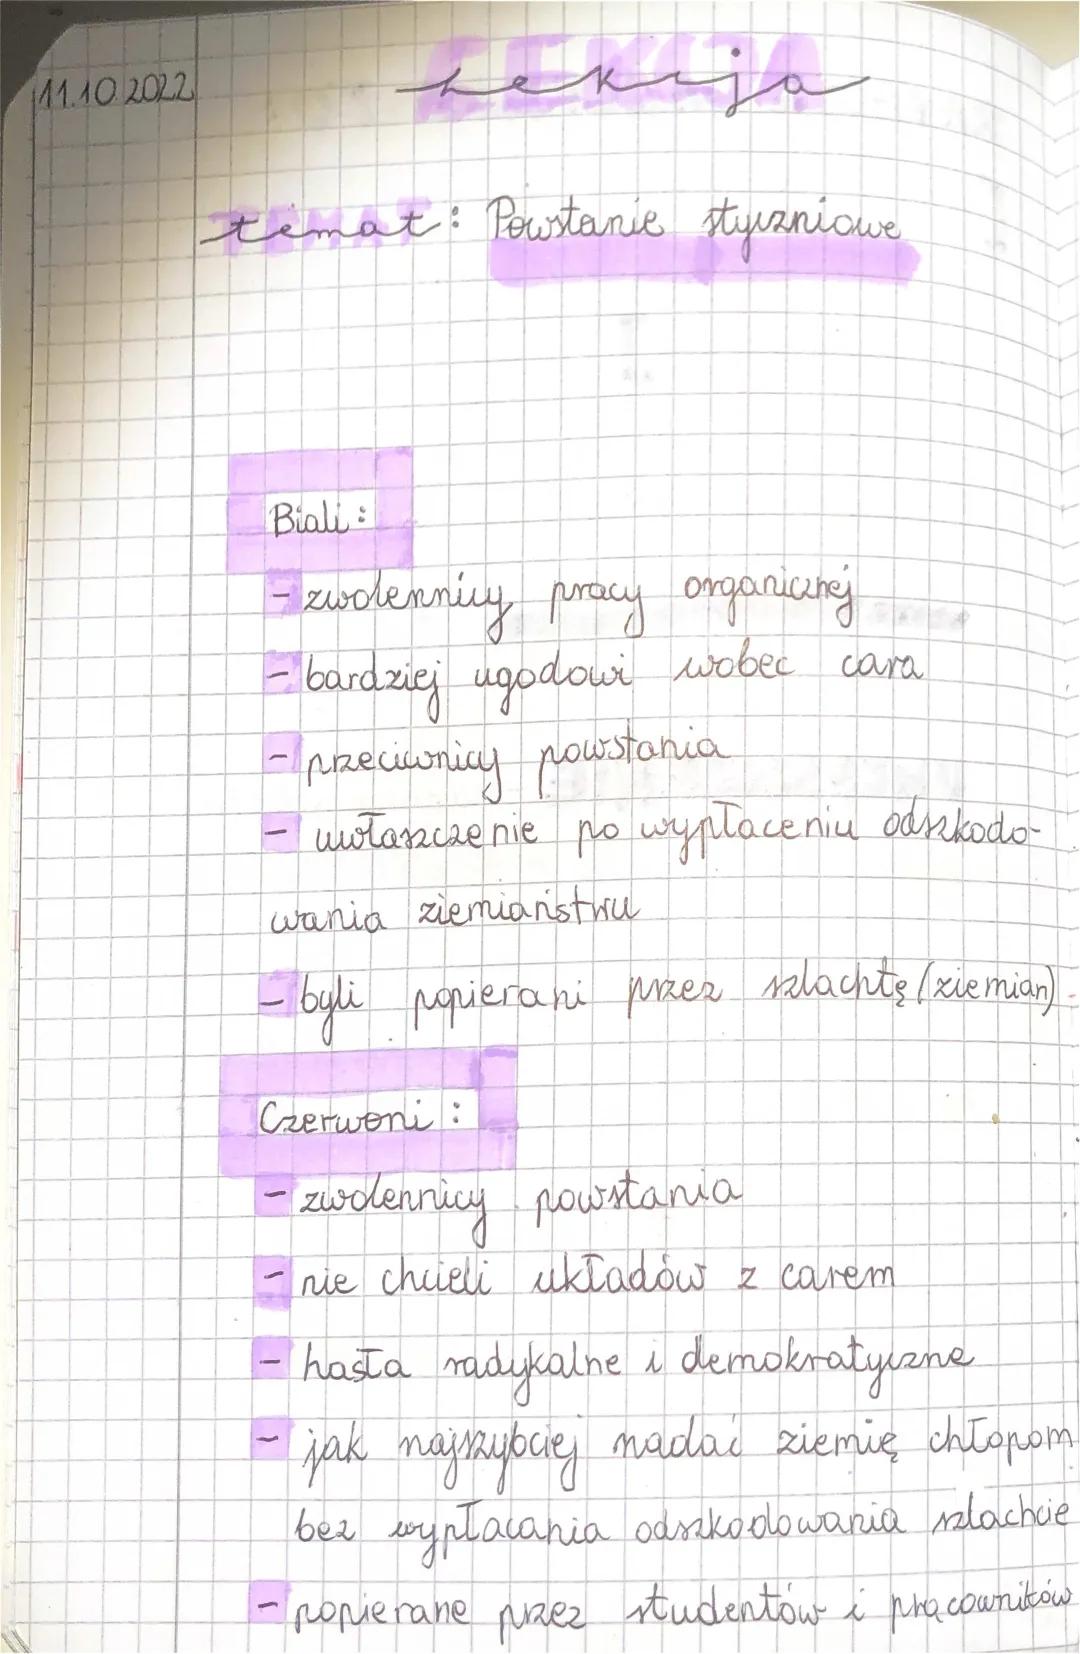 11.10.2022
LEKCJA
Lekcja
TEMAT
temat: Powstanie styczniowe
Biali:
- zwolennicy pracy organicznej
- bardziej ugodowi wobec cara
- przeciwnicy powstania
- uwłaszczenie po wypłaceniu odszkodo-
wania ziemiaństwu
- byli popierani przez szlachtę (ziemian)
Czerwoni:
- zwolennicy powstania
- nie chcieli układów z carem
- hasła radykalne i demokratyczne
- jak najszybciej nadać ziemię chłopom
bez wypłacania odszkodowania szlachcie
- popierane przez studentów i pracowników